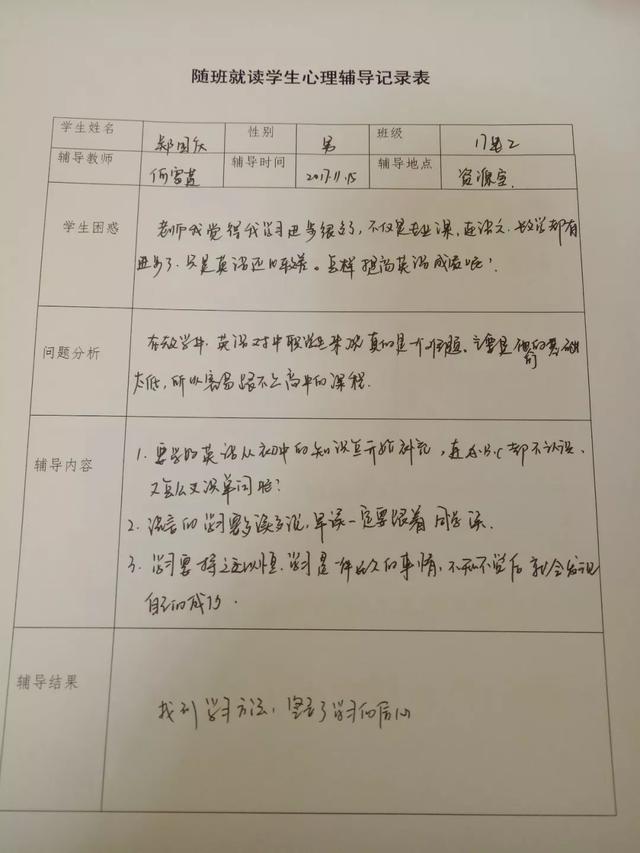 随班就读学生心理辅导记录表
学生姓名 郑国庆 性别 男 班级 17器2
辅导教师 何雪莲 辅导时间 2017.11.15 辅导地点 资源室.
学生困惑 老师我觉得我学习进步很多了,不仅是专业课,连语文.数学都有
进步了.只是英语还比较差。怎样提高英语成绩呢?
问题分析 在教学中.英语对中职学生来说真的是个难题。主要是他们的基础
太低,所以容易跟不上高中的课程.
辅导内容 1. 要学好英语从初中的知识点开始补充,连ABC都不认识.
又怎么认识单词呢?
2. 语言的学习要多读多说,早读一定要跟着同学读.
3. 学习要持之以恒.学习是一件长久的事情,不知不觉后就会发现
自己的成功.
辅导结果 找到学习方法,坚定了学习的信心